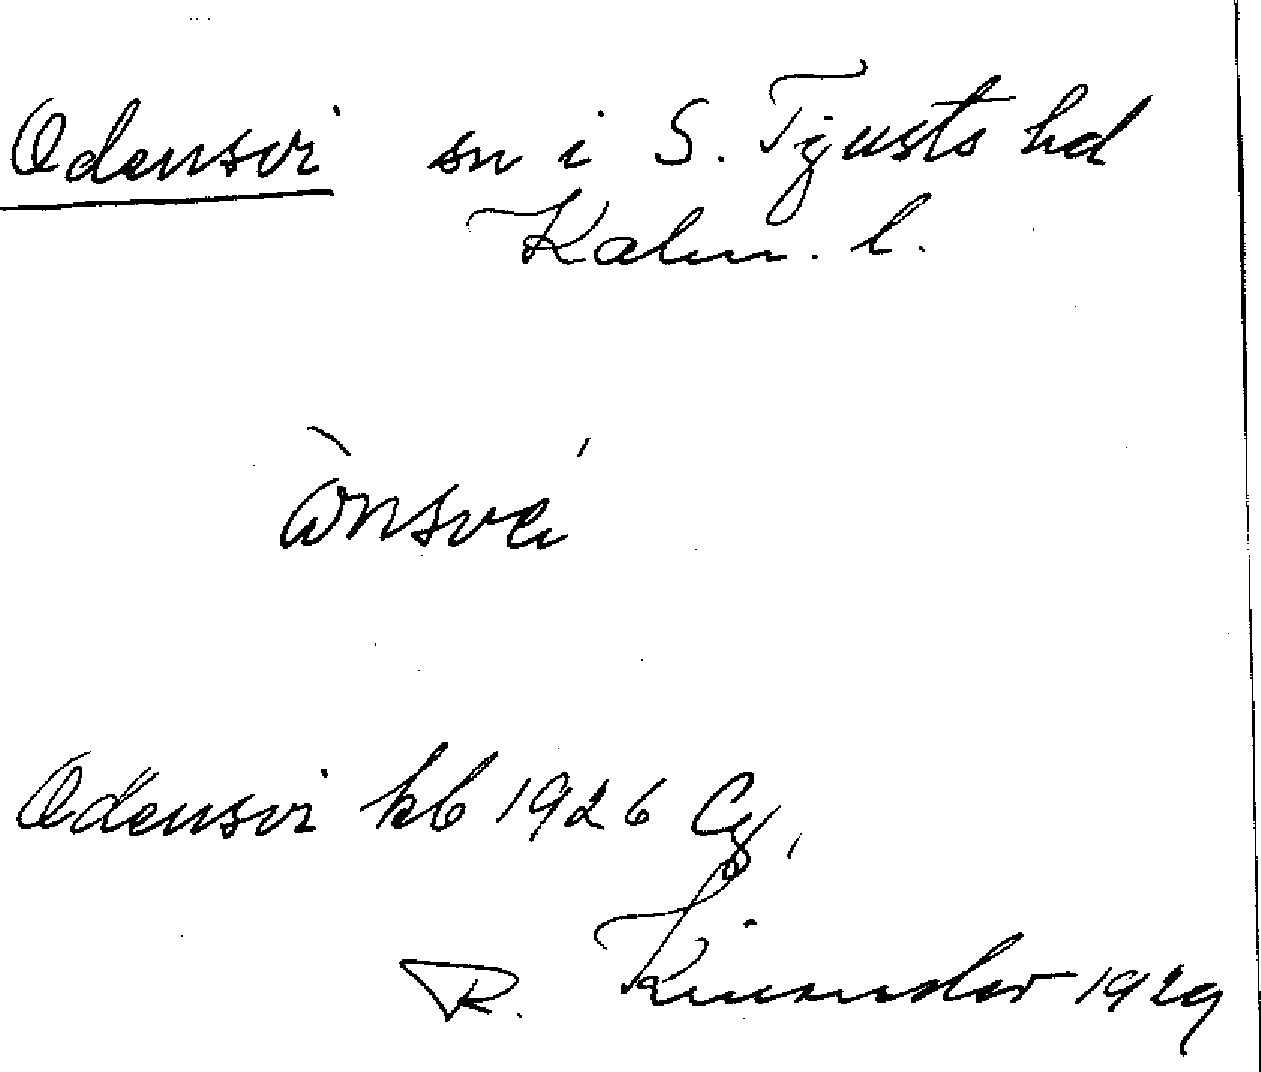 Odensvi sn i S. Tjusts hd
Kalm. l.
Odensvi kb 1926 Cg,
R. 1929